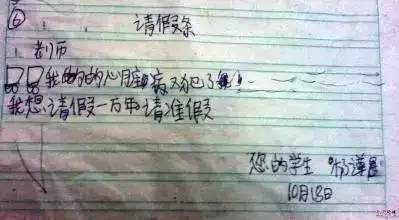 ⑥ 请假条
老师
我的的心脏病又犯了
我想请假一万 请准假
您的学生
10月18日